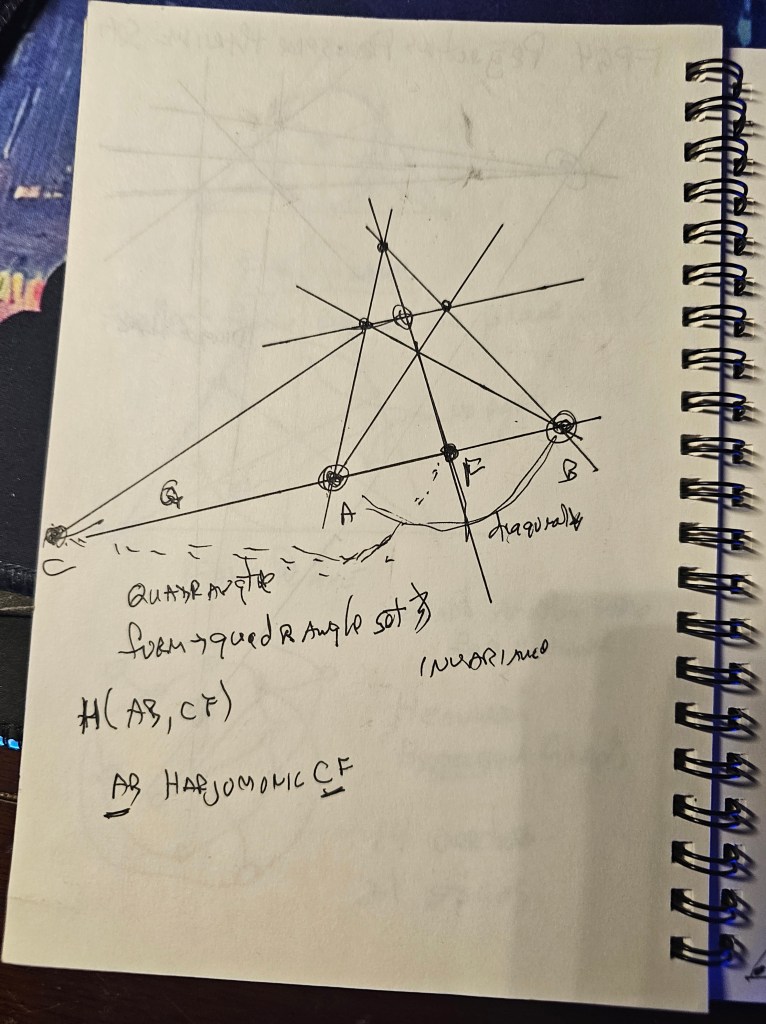 G
A
F
B
C
diagonals
QUADRANGLE
form → quadRAngle set
INVARIANCE
H( AB, CF)
AB HARJOMONIC CF